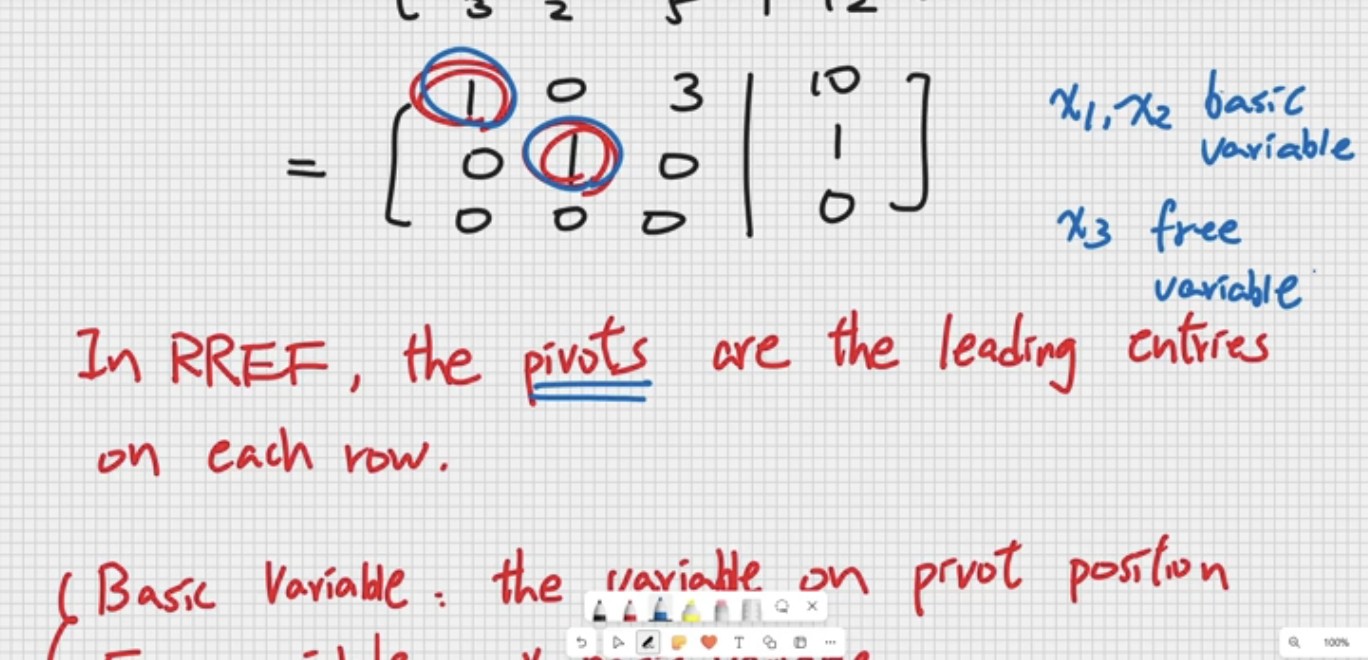 3 2 5 | 12
= [ 1 0 3 | 10 ]
0 1 0 | 1
0 0 0 | 0
x1, x2 basic
variable
x3 free
variable
In RREF, the pivots are the leading entries
on each row.
Basic Variable : the variable on pivot position
T
100%